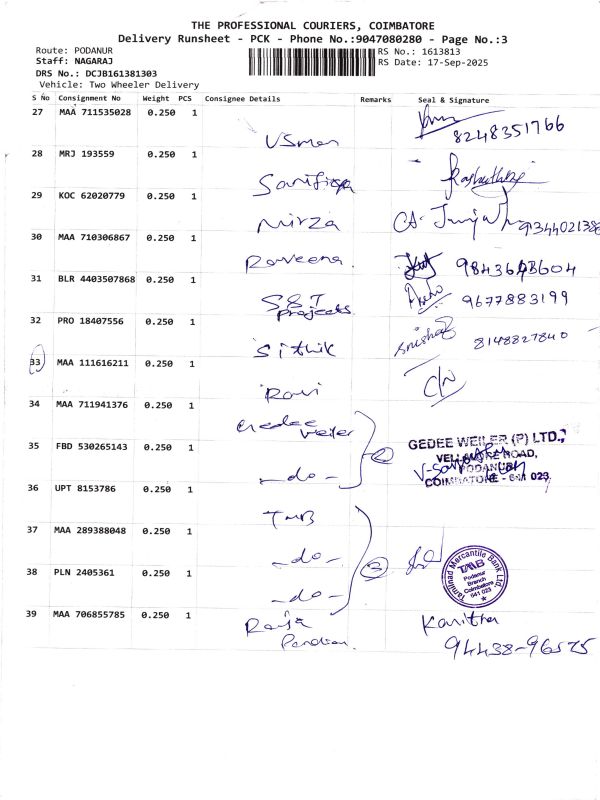 THE PROFESSIONAL COURIERS, COIMBATORE
Delivery Runsheet - PCK - Phone No.:9047080280 - Page No.:3
Route: PODANUR
RS No.: 1613813
Staff: NAGARAJ
RS Date: 17-Sep-2025
DRS No.: DCJB161381303
Vehicle: Two Wheeler Delivery
S No Consignment No Weight PCS Consignee Details Remarks Seal & Signature
27 MAA 711535028 0.250 1
Usman 8248351766
28 MRJ 193559 0.250 1
29 KOC 62020779 0.250 1
Mirza
30 MAA 710306867 0.250 1
Raveena 9843643604
31 BLR 4403507868 0.250 1
S&T Projects 9677883199
32 PRO 18407556 0.250 1
Sithik 8148827840
33 MAA 111616211 0.250 1
Ravi
34 MAA 711941376 0.250 1
Gedee Weiler
GEDEE WEILER (P) LTD.,
35 FBD 530265143 0.250 1
VELLALORE ROAD,
PODANUR,
-do-
COIMBATORE - 641 023
36 UPT 8153786 0.250 1
TMB
37 MAA 289388048 0.250 1
-do- 3
Tamilnad Mercantile Bank Ltd.
TMB
Podanur
Branch
Coimbatore
641 023
38 PLN 2405361 0.250 1
-do-
39 MAA 706855785 0.250 1
Raja Pandian
Kavitha
94438-96575